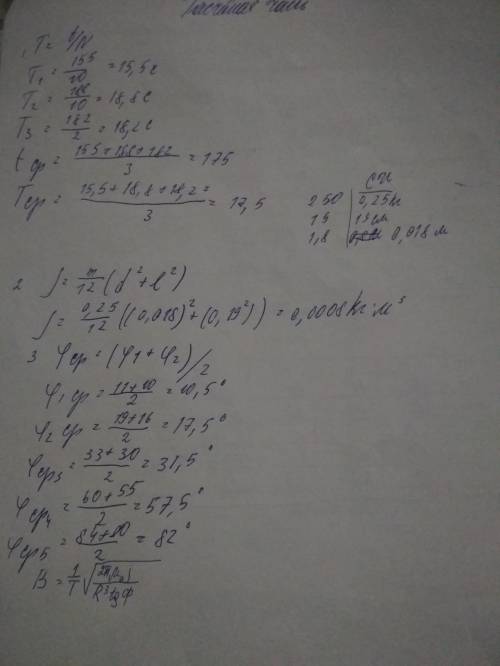 Расчётная часть
1. T = t/N
T₁ = 155/10 = 15,5 с
T₂ = 188/10 = 18,8 с
T₃ = 182/2 = 18,2 с
t ср = (155+188+182)/3 = 175
T ср = (15,5+18,8+18,2)/3 = 17,5
СИ
250 | 0,25 кг
19 | 19 см
1,8 | 0,018 м
2 J = m/12 (d² + l²)
J = 0,25/12 ((0,018)² + (0,19²)) = 0,0008 кг·м³
3 φ ср = (φ1 + φ2)/2
φ₁ ср = (11+10)/2 = 10,5°
φ₂ ср = (19+16)/2 = 17,5°
φ ср₃ = (33+30)/2 = 31,5°
φ ср₄ = (60+55)/2 = 57,5°
φ ср₅ = (84+80)/2 = 82°
B = 1/T √